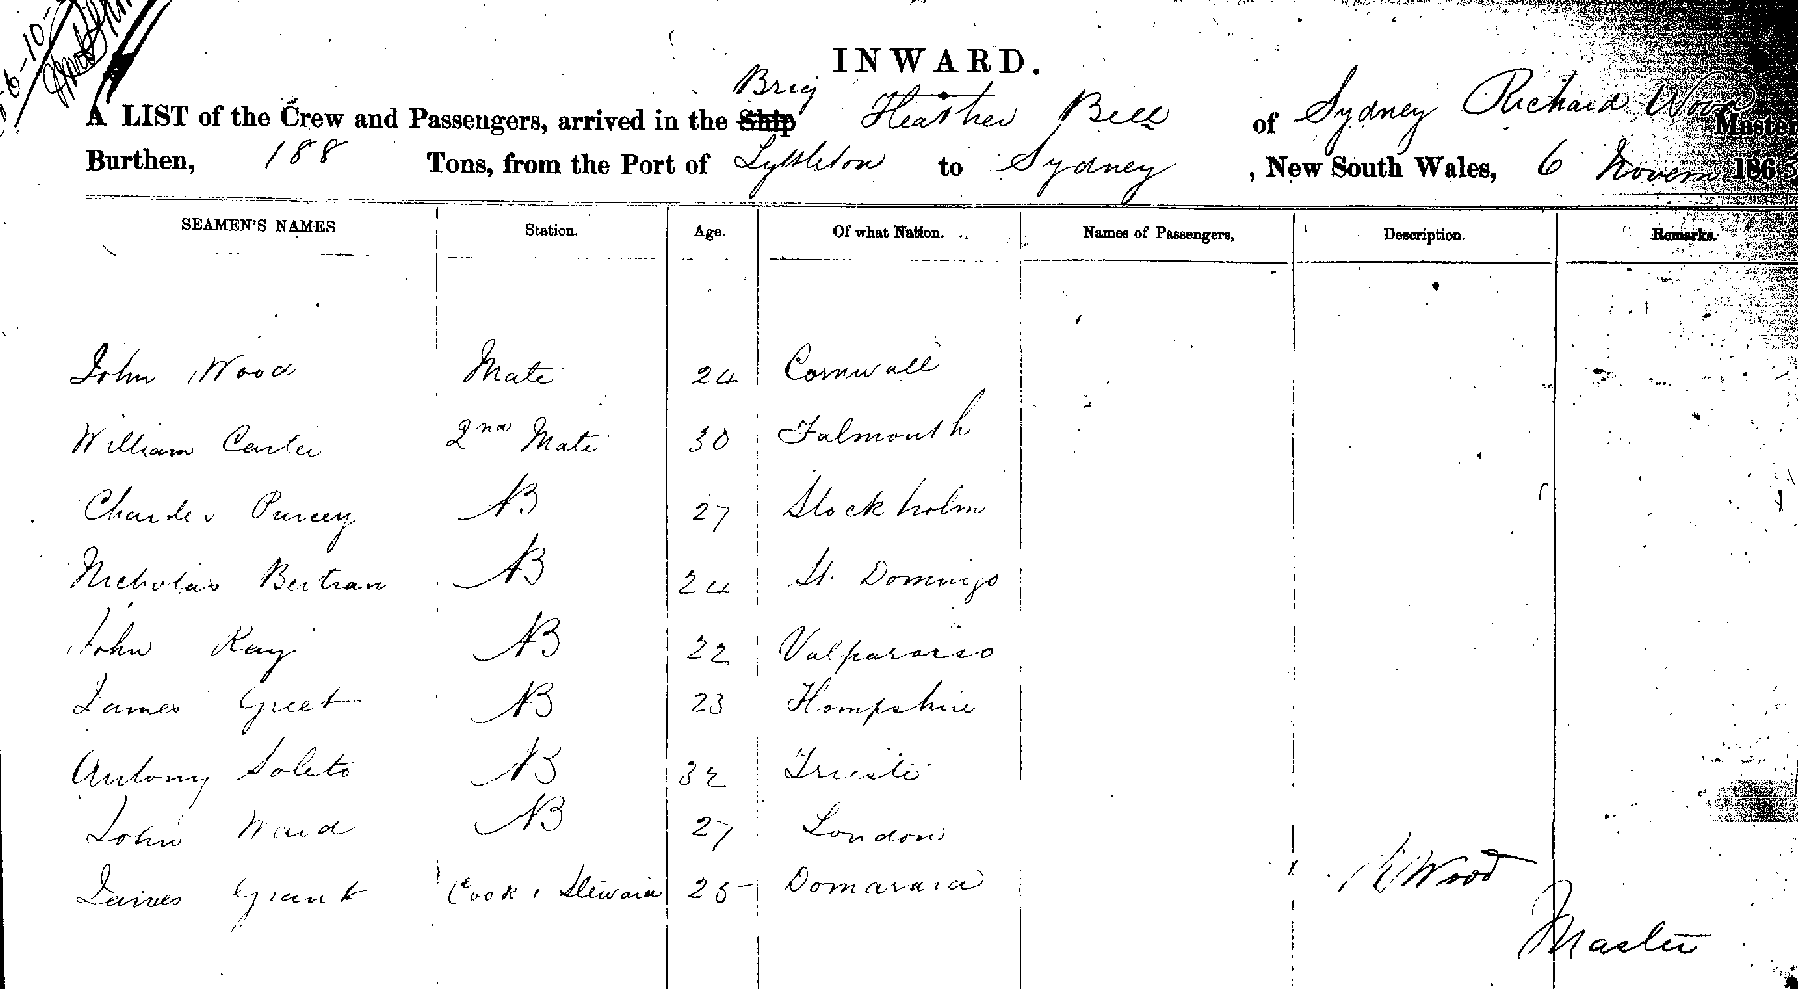 INWARD.
Brig
A LIST of the Crew and Passengers, arrived in the Ship Heather Bell of Sydney Richard Wood Master
Burthen, 188 Tons, from the Port of Lyttleton to Sydney, New South Wales, 6 Novem 1863
SEAMEN'S NAMES Station. Age. Of what Nation. Names of Passengers, Description. Remarks.
John Wood Mate 24 Cornwall
William Carter 2nd Mate 30 Falmouth
Charles Purcey AB 27 Stockholm
Nicholas Bertran AB 24 St. Domingo
John Kay AB 22 Valparaiso
James Greet AB 23 Hampshire
Antony Soleto AB 32 Trieste
John Ward AB 27 London
James Grant Cook & Steward 25 Domarara
R Wood
Master